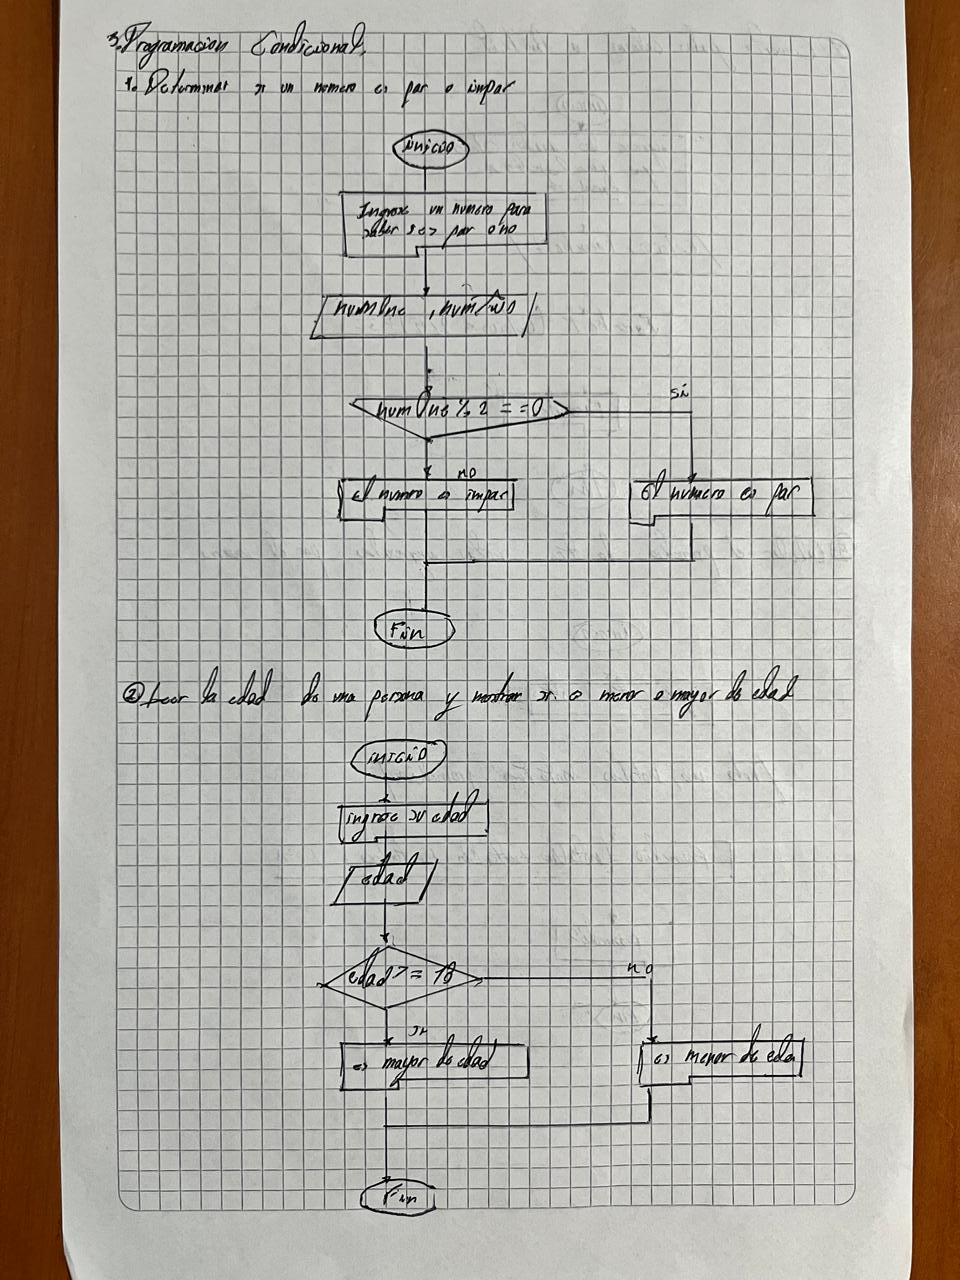 3. Programacion Condicional.
1. Determinar si un numero es par o impar
inicio
Ingrese un numero para
saber si es par o no
numUno
numUno % 2 == 0
si
no
El numro es impar
El numero es par
Fin
② Leer la edad de una persona y mostrar si es menor o mayor de edad
inicio
ingrese su edad
edad
edad >= 18
no
si
es mayor de edad
es menor de eda
Fin